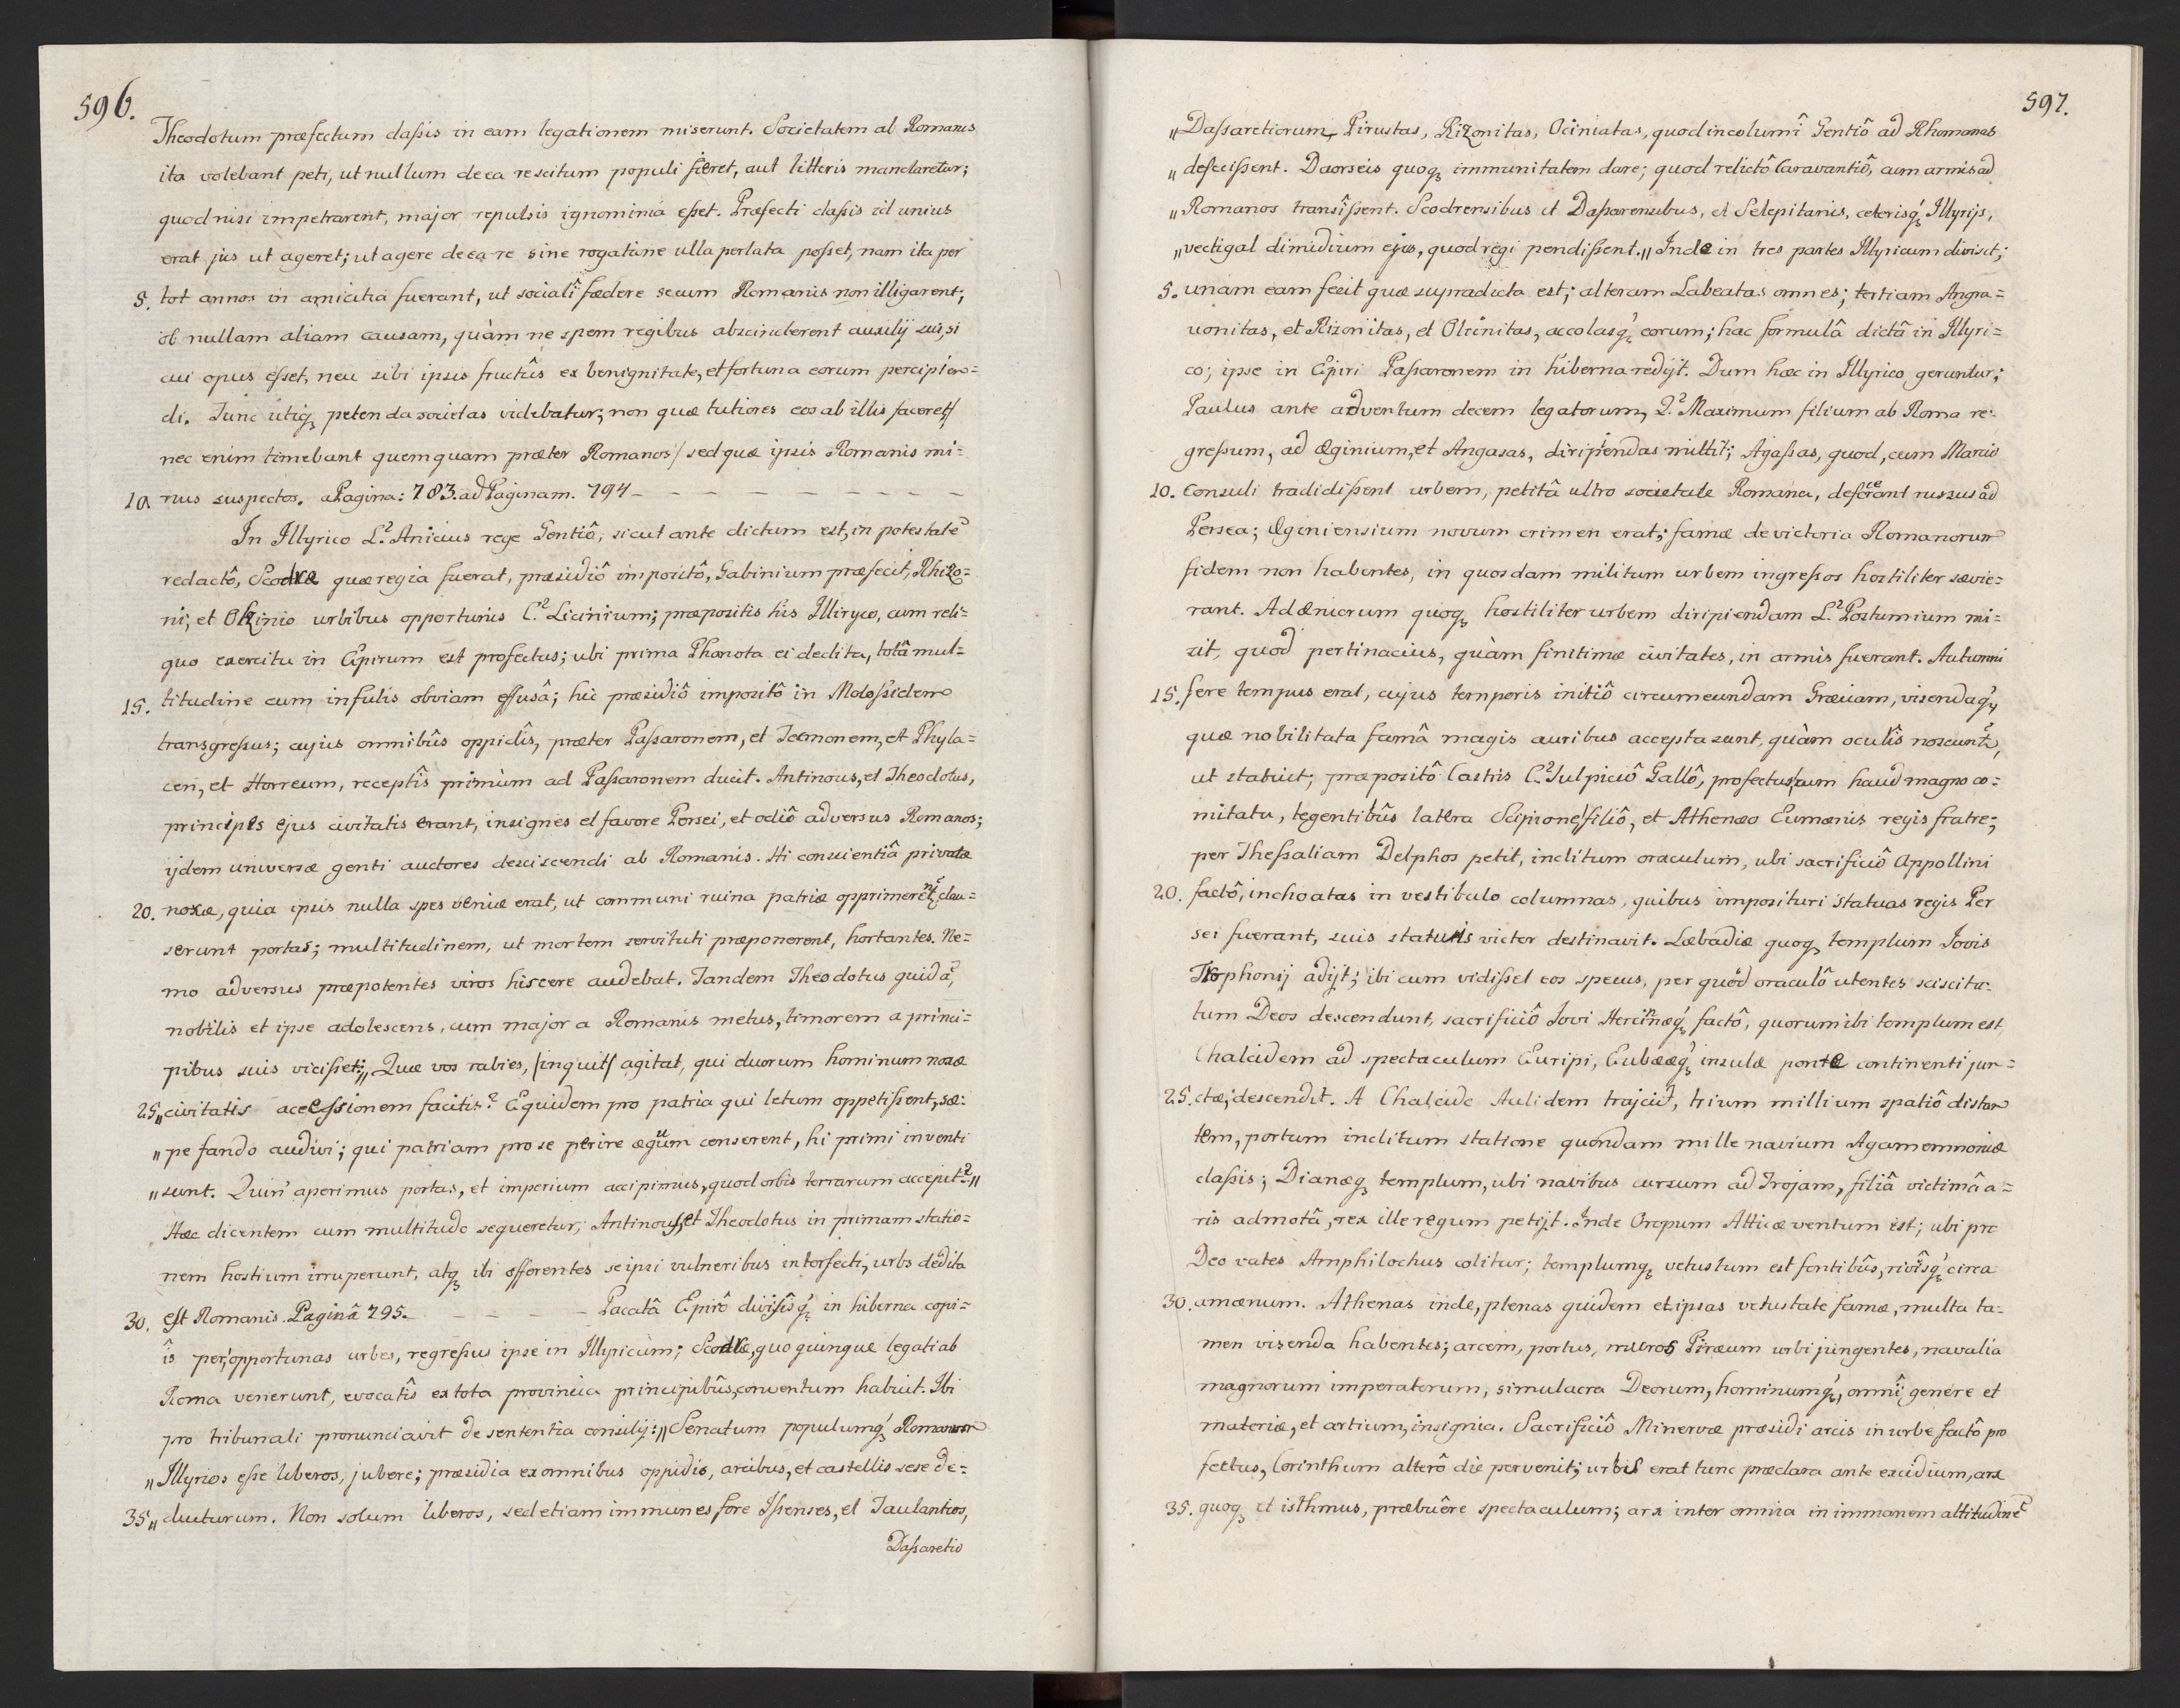 596.
Theodotum præfectum classis in eam legationem miserunt. Societatem ab Romanis
ita volebant peti, ut nullum de ea rescitum populi fieret, aut litteris mandaretur;
quod nisi impetrarent, major repulsis ignominia esset. Præfecti classis id unius
erat jus ut ageret; ut agere de ea re sine rogatione ulla perlata posset, nam ita per
5. tot annos in amicitia fuerant, ut sociali fœdere secum Romanis non illigarent,
ob nullam aliam causam, quàm ne spem regibus abscinderent auxilij sui, si
cui opus esset, neu sibi ipsis fructûs ex benignitate, et fortuna eorum percipien=
di. Tunc utiq₃ petenda societas videbatur; non quæ tutiores eos ab illis faceret/
nec enim timebant quemquam præter Romanos/ sed quæ ipsis Romanis mi=
10. nus suspectos. a Pagina: 783. ad Paginam. 794 - - - - - - - - -
In Illyrico L. Anicius rege Gentiô, sicut ante dictum est, in potestatē
redactô, Scodræ quæ regia fuerat, præsidiô impositô, Gabinium præfecit, Rhizo=
ni, et Olcinio urbibus opportunis C. Licinium; præpositis his Illiryco, cum reli=
quo exercitu in Epirum est profectus; ubi prima Phanota ei dedita, totâ mul=
15. titudine cum infulis obviam effusâ; hic præsidiô impositô in Molossidem
transgressus; cujus omnibûs oppidîs, præter Passaronem, et Tecmonem, et Phyla=
cen, et Horreum, receptîs primùm ad Passaronem ducit. Antinous, et Theodotus,
principes ejus civitatis erant, insignes et favore Persei, et odiô adversus Romanos;
ijdem universæ genti auctores desciscendi ab Romanis. Hi conscientiâ privatæ
20. noxæ, quia ipsis nulla spes veniæ erat, ut communi ruina patriæ opprimerent̃, clau=
serunt portas; multitudinem, ut mortem servituti præponerent, hortantes. Ne=
mo adversus præpotentes viros hiscere audebat. Tandem Theodotus quidā,
nobilis et ipse adolescens, cum major a Romanis metus, timorem a princi=
pibus suis vicisset; „Quæ vos rabies, /inquit/ agitat, qui duorum hominum noxæ
25. „civitatis accessionem facitis? Equidem pro patria qui letum oppetissent, sæ=
„pe fando audivi; qui patriam pro se perire æquum censerent, hi primi inventi
„sunt. Quin aperimus portas, et imperium accipimus, quod orbis terrarum accepit?„
Hæc dicentem cum multitudo sequeretur; Antinous, et Theodotus in primam statio=
nem hostium irruperunt, atq₃ ibi offerentes se ipsi vulneribus interfecti, urbs dedita
30. est Romanis. Paginâ 795. - - - - - Pacatâ Epirô divisîsq́₃ in hiberna copi=
îs per opportunas urbes, regressus ipse in Illyricum; Scodræ, quo quinque legati ab
Roma venerunt, evocatîs ex tota provincia principibûs, conventum habuit. Ibi
pro tribunali pronunciavit de sententia consilij: „Senatum populumq́₃ Romanum
„Illyrios esse liberos, jubere; præsidia ex omnibus oppidis, arcibus, et castellis sese de=
35. „ducturum. Non solum liberos, sed etiam immunes fore Issenses, et Taulantios,
Dassaretio
597.
„Dassaretiorum, Pirustas, Rizonitas, Olciniatas, quod incolumî Gentiô ad Rhomanos
„defecissent. Daorseis quoq₃ immunitatem dare; quod relictô Caravantiô, cum armis ad
„Romanos transîssent. Scodrensibus et Dassarensibus, et Selepitanis, ceterisq́₃ Illyrijs,
„vectigal dimidium ejus, quod regi pendissent.„ Inde in tres partes Illyricum divisit;
5. unam eam fecit quæ supradicta est; alteram Labeatas omnes; tertiam Agra=
uonitas, et Rizonitas, et Olcinitas, accolasq́₃ eorum; hac formulâ dictâ in Illyri=
co; ipse in Epiri Passaronem in hiberna redijt. Dum hæc in Illyrico geruntur;
Paulus ante adventum decem legatorum, Q. Maximum filium ab Roma re=
gressum, ad Æginium, et Angasas, diripiendas mittit; Agassas, quod, cum Marcio
10. Consuli tradidissent urbem, petitâ ultro societate Romana, defecerant russus ad
Persea; Æginiensium novum crimen erat; famæ de victoria Romanorum
fidem non habentes, in quosdam militum urbem ingressos hostiliter sævie=
rant. Ad Æniorum quoq₃ hostiliter urbem diripiendam L. Postumium mi=
sit, quod pertinacius, quàm finitimæ civitates, in armis fuerant. Autumni
15. fere tempus erat, cujus temporis initiô circumeundam Græciam, visendaq́₃
quæ nobilitata famâ magis auribus accepta sunt, quàm oculîs noscunt̃,
ut statuit; præpositô Castris C. Sulpiciô Gallô, profectus, cum haud magno co=
mitatu, tegentibûs latera Scipione, filiô, et Athenæo Eumænis regis fratre;
per Thessaliam Delphos petit, inclitum oraculum, ubi sacrificiô Appollini
20. factô, inchoatas in vestibulo columnas, quibus imposituri statuas regis Per
sei fuerant, suis statuis victor destinavit. Lebadiæ quoq₃ templum Jovis
Trophonij adijt; ibi cum vidisset eos specus, per quod oraculô utentes sciscita=
tum Deos descendunt, sacrificiô Jovi Hercinnæq́₃ factô, quorum ibi templum est,
Chalcidem ad spectaculum Euripi, Eubææq́₃ insulæ ponte continenti jun=
25. ctæ; descendit. A Chalcide Aulidem trajcit, trium millium spatiô distan
tem, portum inclitum statione quondam mille navium Agamemnoniæ
classis; Dianæq₃ templum, ubi navibus cursum ad Trojam, filiâ victimâ a=
ris admotâ, rex ille regum petijt. Inde Oropum Atticæ ventum est; ubi pro
Deo vates Amphilochus colitur; templumq₃ vetustum est fontibûs, rivîsq́₃ circa
30. amœnum. Athenas inde, plenas quidem et ipsas vetustate famæ, multa ta=
men visenda habentes; arcem, portus, muros Piræum urbi jungentes, navalia
magnorum imperatorum, simulacra Deorum, hominumq́₃, omnî genere et
materiæ, et artium, insignia. Sacrificiô Minervæ præsidi arcis in urbe factô pro
fectus, Corinthum alterô die pervenit; urbs erat tunc præclara ante excidium, arx
35. quoq₃ et isthmus, præbuêre spectaculum; arx inter omnia in immanem altitudinē